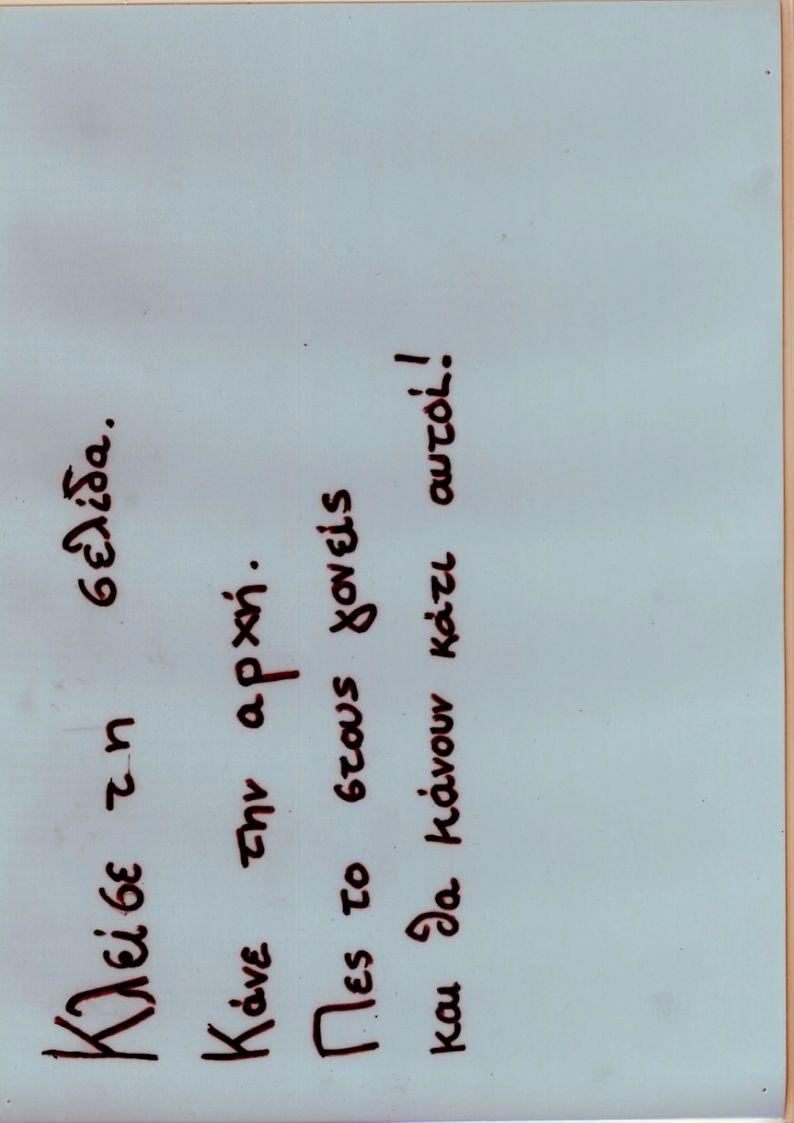 Κλείσε τη σελίδα.
Κάνε την αρχή.
Πες το στους γονείς
και θα κάνουν κάτι αυτοί!